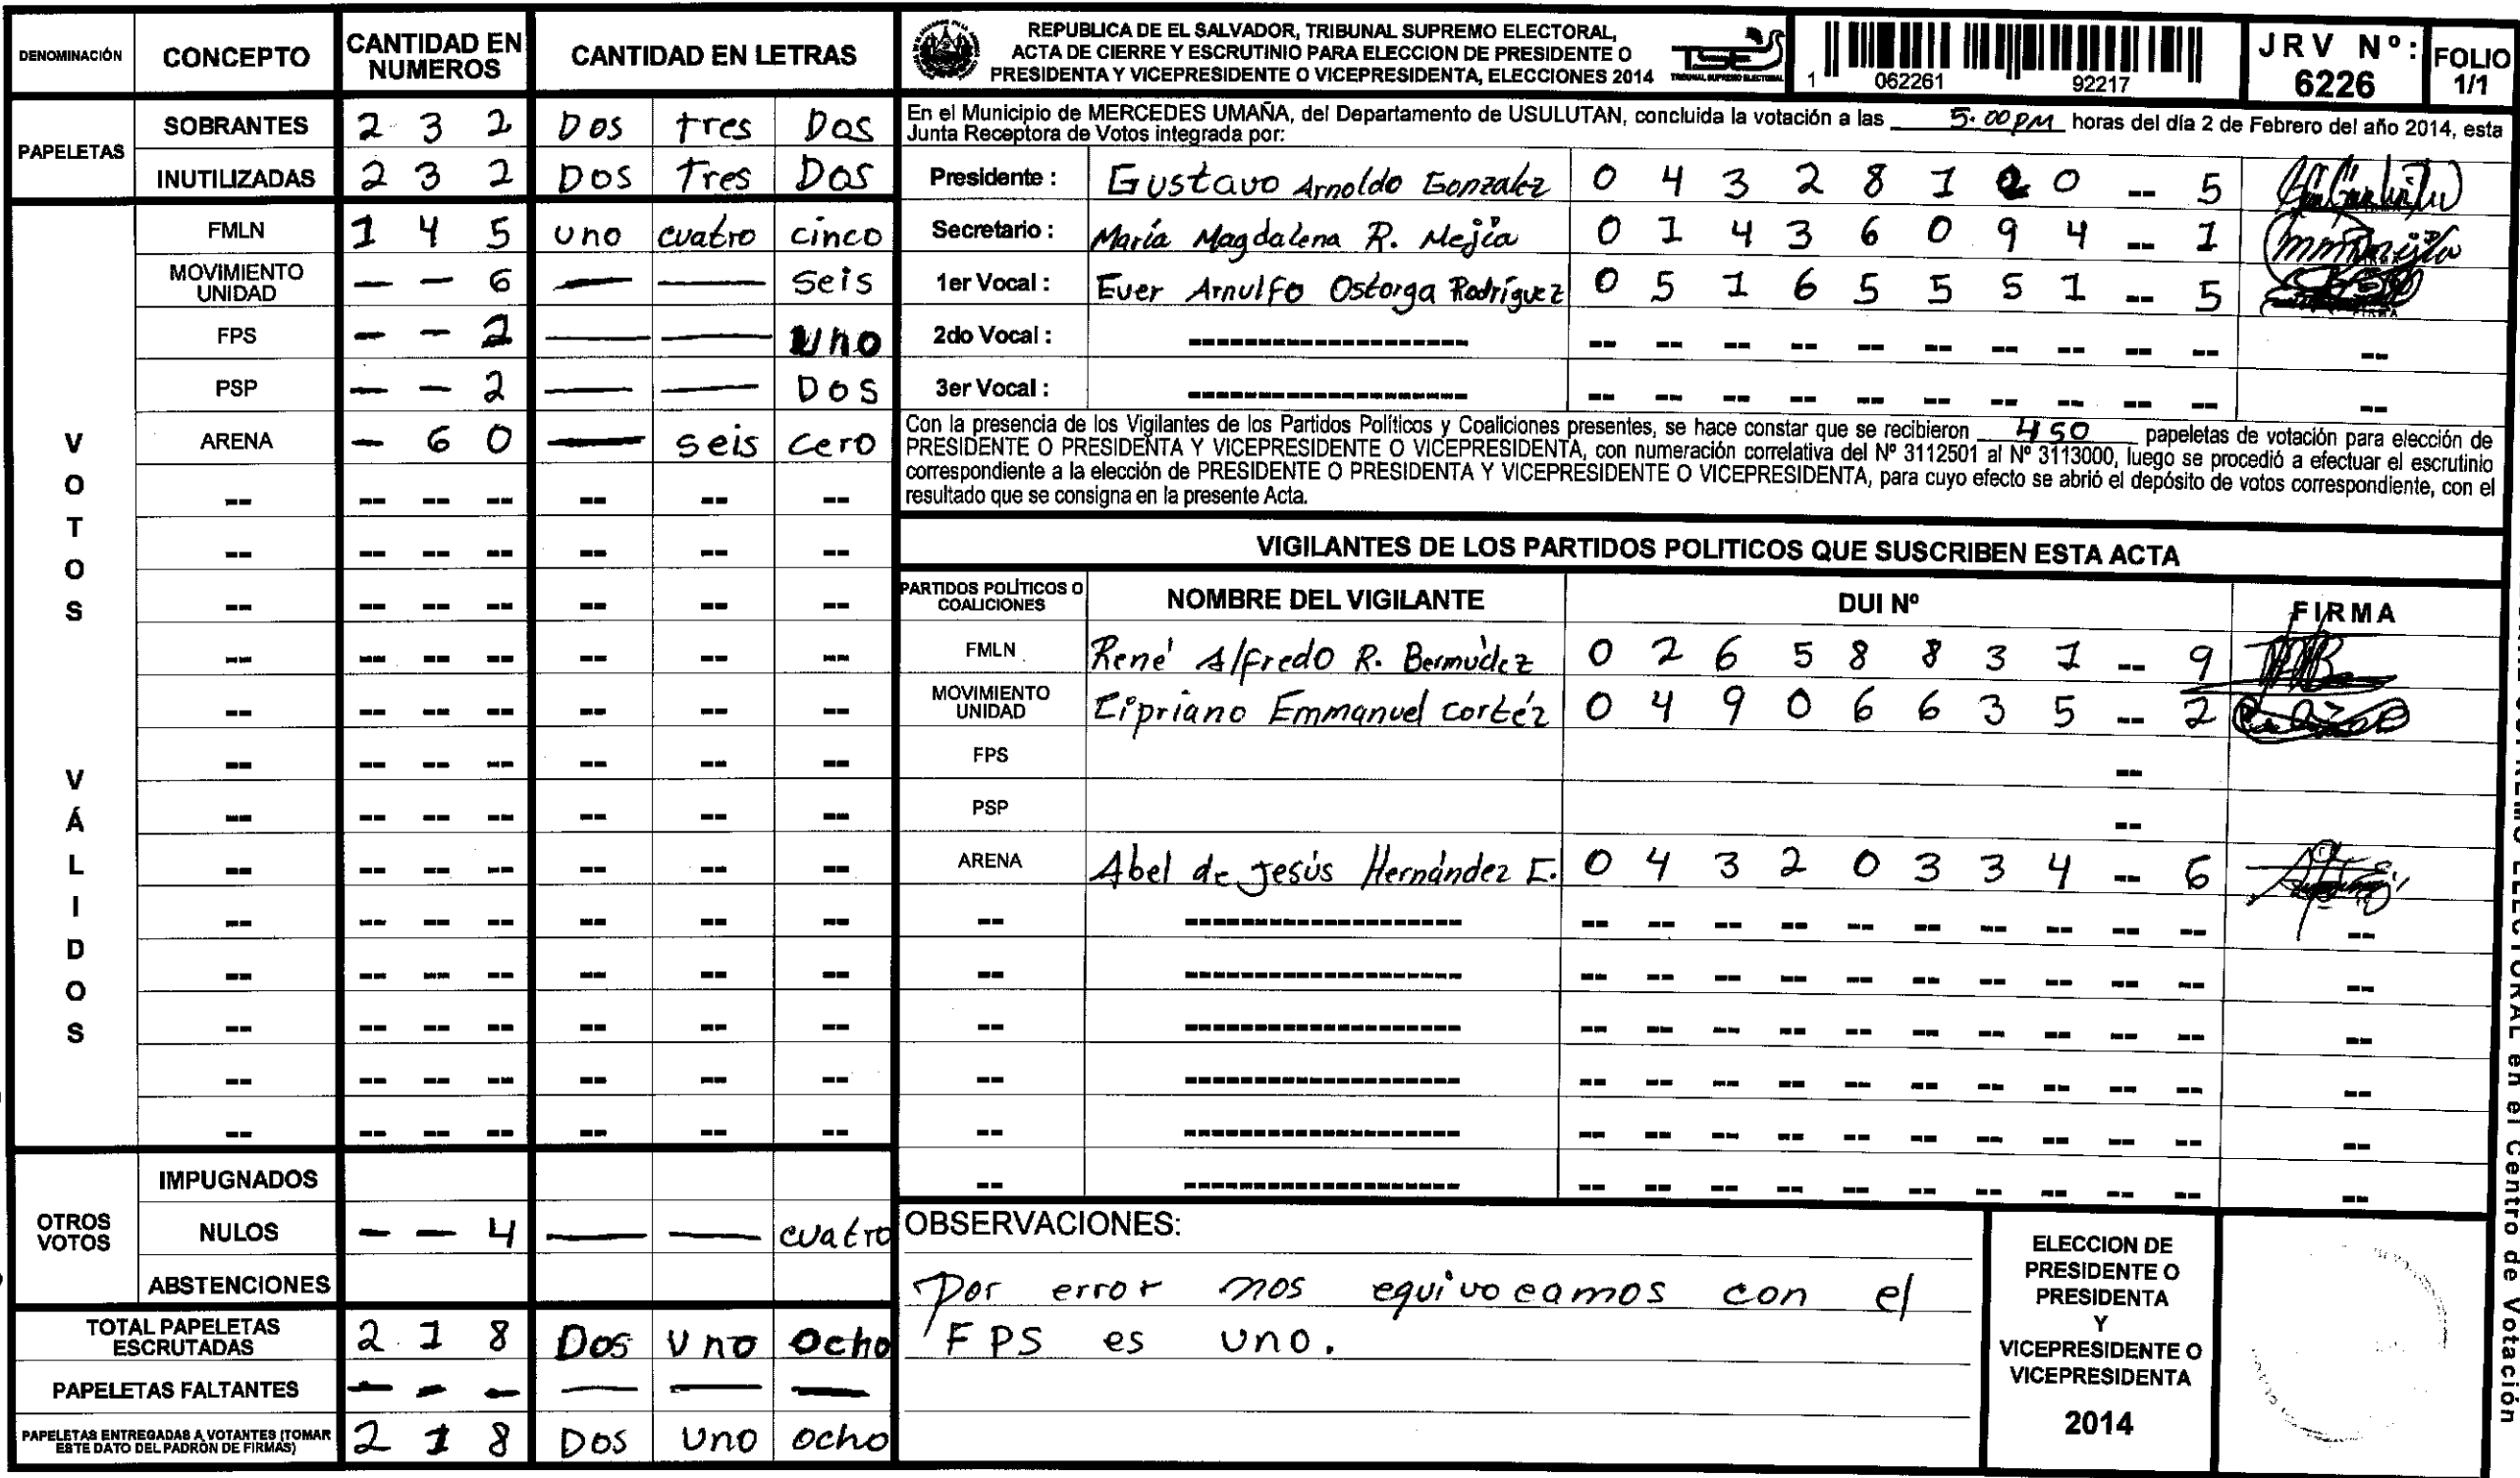 DENOMINACIÓN CONCEPTO CANTIDAD EN NUMEROS CANTIDAD EN LETRAS
PAPELETAS
SOBRANTES 2 3 2 Dos tres Dos
INUTILIZADAS 2 3 2 Dos Tres Dos
VOTOS VÁLIDOS
FMLN 1 4 5 uno cuatro cinco
MOVIMIENTO UNIDAD — — 6 — — Seis
FPS — — — — uno
PSP — — 2 — — Dos
ARENA — 6 0 — seis cero
-- -- -- -- -- -- --
-- -- -- -- -- -- --
-- -- -- -- -- -- --
-- -- -- -- -- -- --
-- -- -- -- -- -- --
-- -- -- -- -- -- --
-- -- -- -- -- -- --
-- -- -- -- -- -- --
-- -- -- -- -- -- --
-- -- -- -- -- -- --
-- -- -- -- -- -- --
-- -- -- -- -- -- --
-- -- -- -- -- -- --
OTROS VOTOS
IMPUGNADOS
NULOS — — 4 — — cuatro
ABSTENCIONES
TOTAL PAPELETAS ESCRUTADAS 2 1 8 Dos uno ocho
PAPELETAS FALTANTES — — — — — —
PAPELETAS ENTREGADAS A VOTANTES (TOMAR ESTE DATO DEL PADRÓN DE FIRMAS) 2 1 8 Dos uno ocho
REPUBLICA DE EL SALVADOR, TRIBUNAL SUPREMO ELECTORAL,
ACTA DE CIERRE Y ESCRUTINIO PARA ELECCION DE PRESIDENTE O
PRESIDENTA Y VICEPRESIDENTE O VICEPRESIDENTA, ELECCIONES 2014
TSE
TRIBUNAL SUPREMO ELECTORAL
1 062261 92217
JRV Nº: 6226
FOLIO 1/1
En el Municipio de MERCEDES UMAÑA, del Departamento de USULUTAN, concluida la votación a las 5:00 PM horas del día 2 de Febrero del año 2014, esta
Junta Receptora de Votos integrada por:
Presidente : Gustavo Arnoldo Gonzalez 0 4 3 2 8 1 2 0 -- 5
Secretario : María Magdalena R. Mejía 0 1 4 3 6 0 9 4 -- 1
1er Vocal : Euer Arnulfo Ostorga Rodríguez 0 5 1 6 5 5 5 1 -- 5
2do Vocal : ------------------ -- -- -- -- -- -- -- -- -- -- --
3er Vocal : ------------------ -- -- -- -- -- -- -- -- -- -- --
Con la presencia de los Vigilantes de los Partidos Políticos y Coaliciones presentes, se hace constar que se recibieron 450 papeletas de votación para elección de
PRESIDENTE O PRESIDENTA Y VICEPRESIDENTE O VICEPRESIDENTA, con numeración correlativa del Nº 3112501 al Nº 3113000, luego se procedió a efectuar el escrutinio
correspondiente a la elección de PRESIDENTE O PRESIDENTA Y VICEPRESIDENTE O VICEPRESIDENTA, para cuyo efecto se abrió el depósito de votos correspondiente, con el
resultado que se consigna en la presente Acta.
VIGILANTES DE LOS PARTIDOS POLITICOS QUE SUSCRIBEN ESTA ACTA
PARTIDOS POLÍTICOS O COALICIONES NOMBRE DEL VIGILANTE DUI Nº FIRMA
FMLN René Alfredo R. Bermúdez 0 2 6 5 8 8 3 1 -- 9
MOVIMIENTO UNIDAD Cipriano Emmanuel Cortéz 0 4 9 0 6 6 3 5 -- 2
FPS --
PSP --
ARENA Abel de Jesús Hernández E. 0 4 3 2 0 3 3 4 -- 6
-- ------------------ -- -- -- -- -- -- -- -- -- -- --
-- ------------------ -- -- -- -- -- -- -- -- -- -- --
-- ------------------ -- -- -- -- -- -- -- -- -- -- --
-- ------------------ -- -- -- -- -- -- -- -- -- -- --
-- ------------------ -- -- -- -- -- -- -- -- -- -- --
-- ------------------ -- -- -- -- -- -- -- -- -- -- --
OBSERVACIONES:
Por error nos equivocamos con el
FPS es uno.
ELECCION DE
PRESIDENTE O
PRESIDENTA
Y
VICEPRESIDENTE O
VICEPRESIDENTA
2014
SUPREMO ELECTORAL en el Centro de Votación